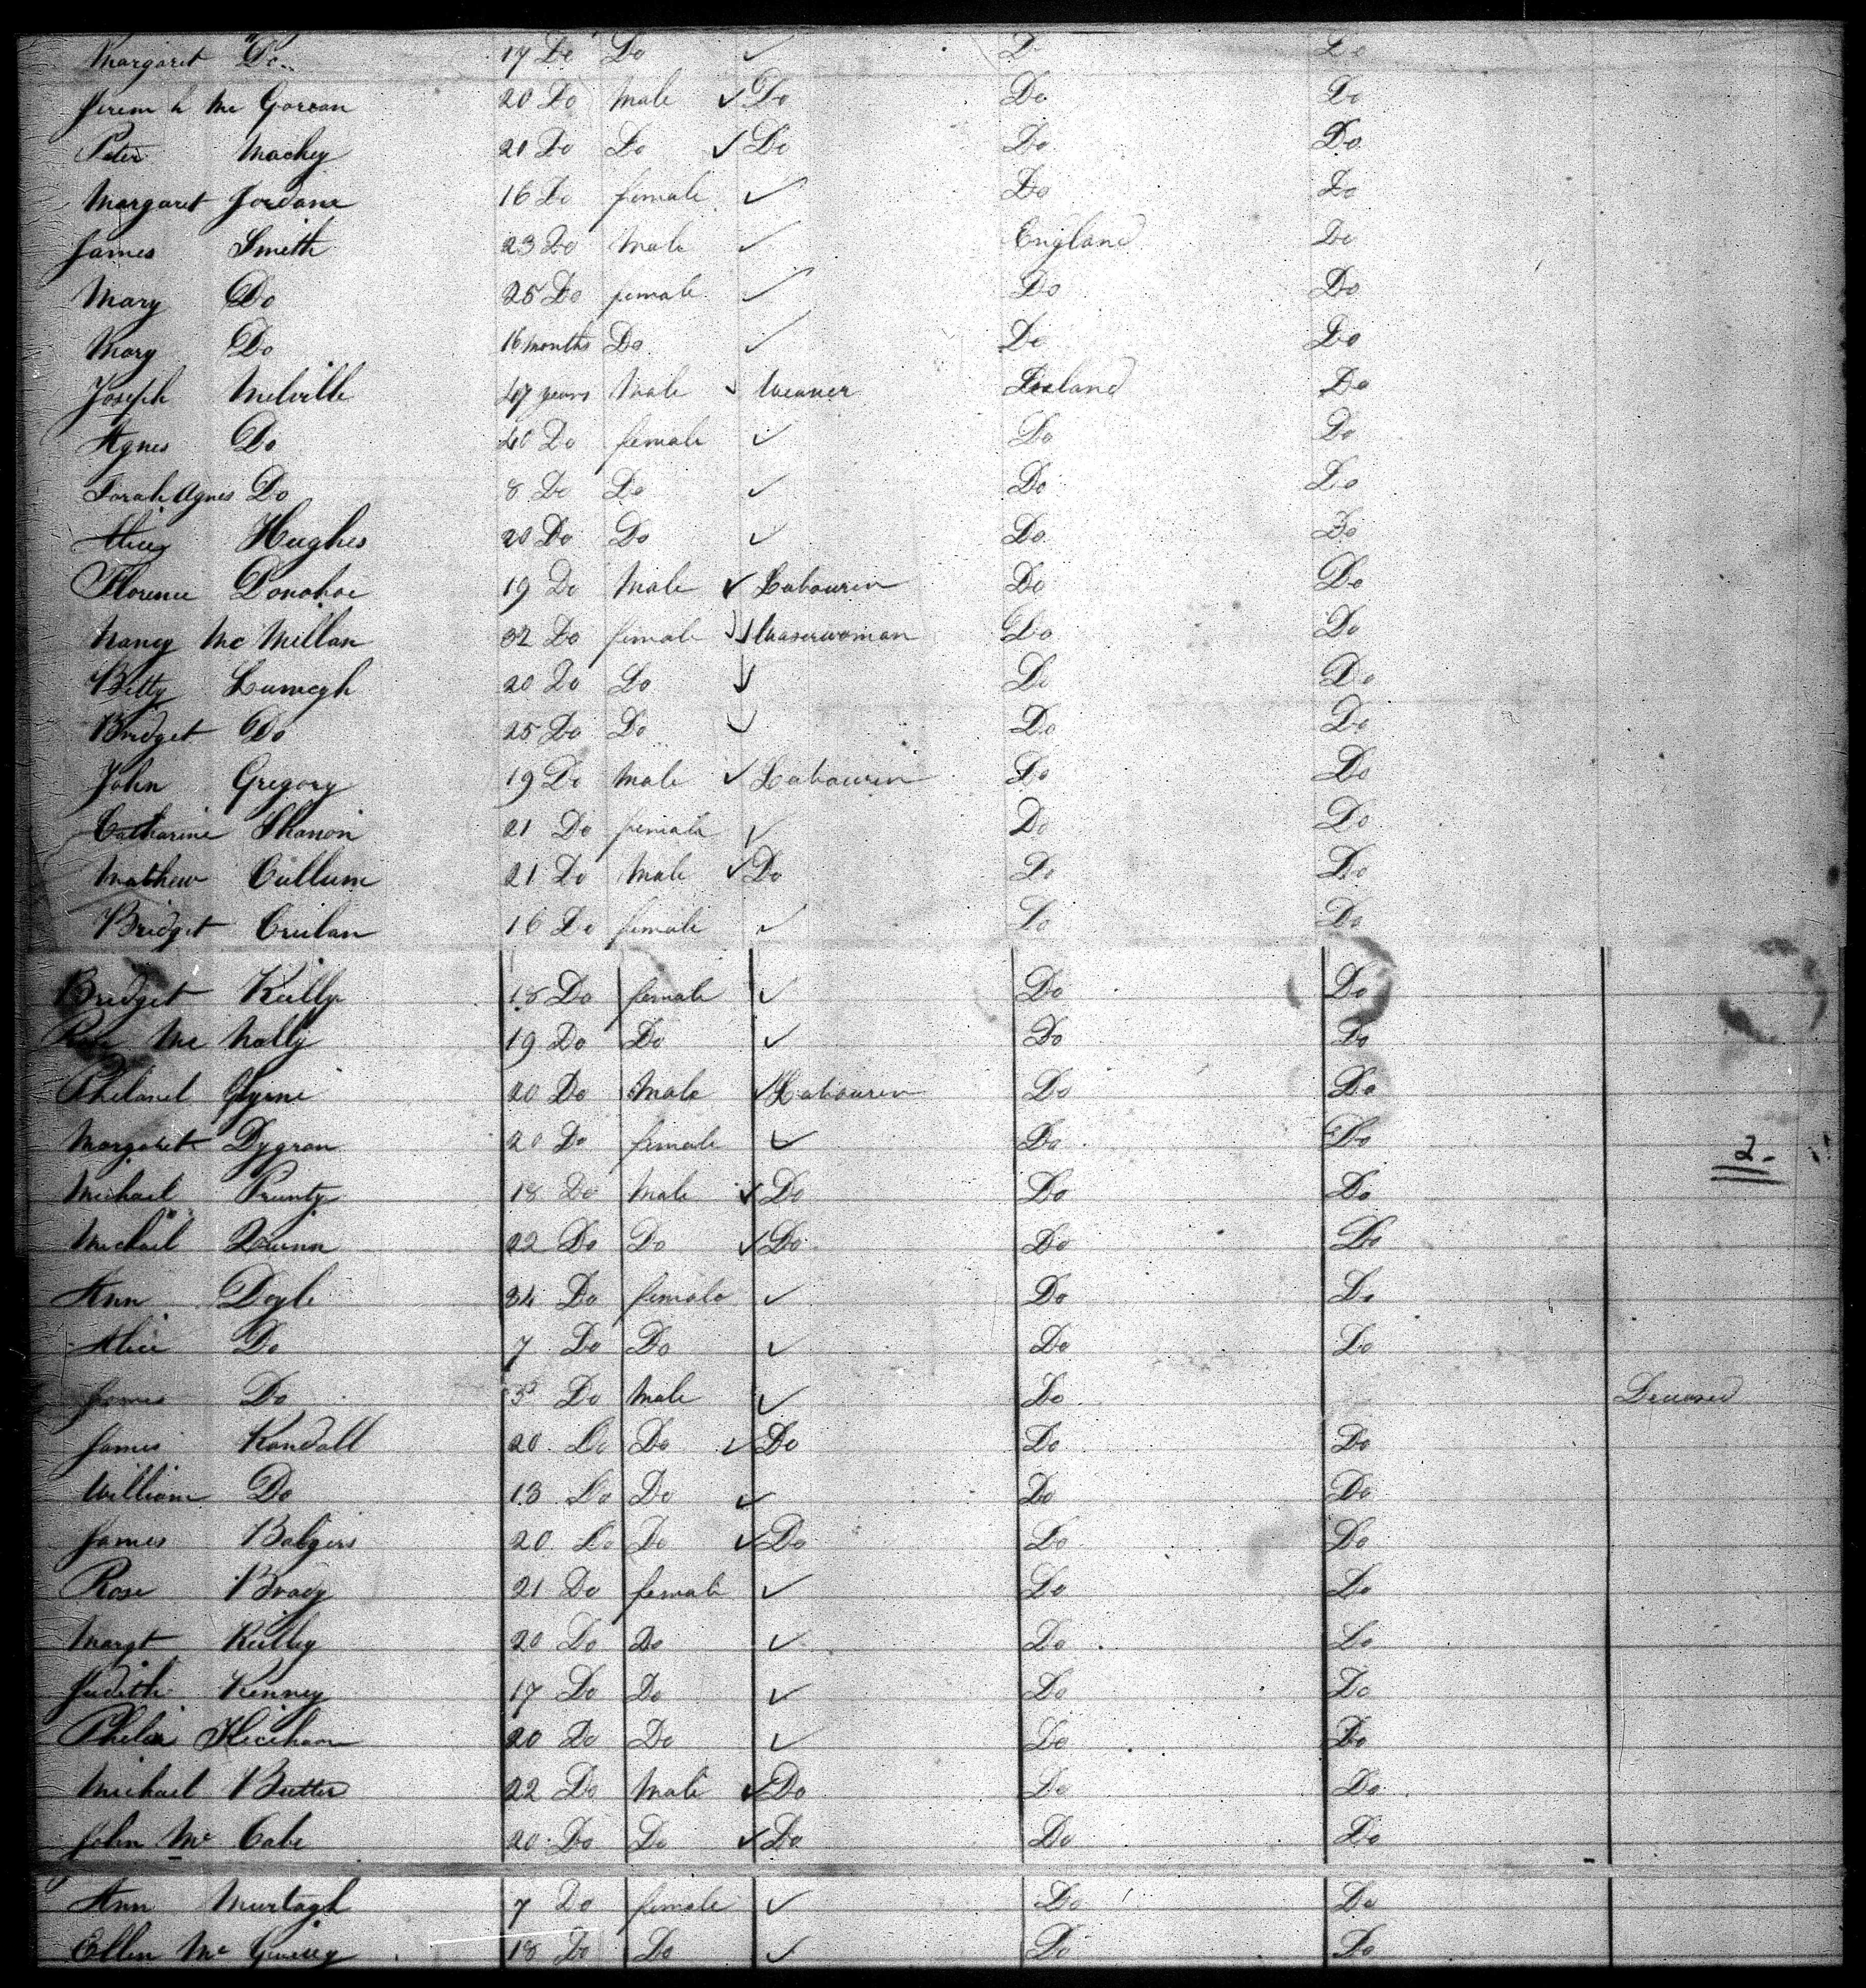 Margaret Do 17 Do Do Do Do
Mc Gowan 20 Do Male Do Do Do
Peter Mackey 21 Do Do Do Do Do
Margaret Jordane 16 Do female Do Do
James Smith 23 Do Male England Do
Mary Do 25 Do female Do Do
Mary Do 16 months Do Do Do
Joseph Melville 47 years Male Weaver Ireland Do
Agnes Do 40 Do female Do Do
Sarah Agnes Do 8 Do Do Do Do
Alicy Hughes 20 Do Do Do Do
Florence Donohoe 19 Do Male Labourer Do Do
Nancy Mc Millan 32 Do female Do Do
Betty 20 Do Do Do Do
Bridget Do 25 Do Do Do Do
John Gregory 19 Do Male Labourer Do Do
Catharine Shanon 21 Do female Do Do
Mathew Cullum 21 Do Male Do Do Do
Bridget 16 Do female Do Do
Bridget Reilly 18 Do female Do Do
Rose Mc Nally 19 Do Do Do Do
20 Do Male Labourer Do Do
Margaret 20 Do female Do Do
2-
Michael Prunty 18 Do Male Do Do Do
Michael Quinn 22 Do Do Do Do Do
Ann Doyle 34 Do female Do Do
Alice Do 7 Do Do Do Do
James Do 3 Do Male Do Deceased
James Kandall 20 Do Do Do Do Do
William Do 13 Do Do Do Do
James 20 Do Do Do Do Do
Rose Brady 21 Do female Do Do
Margt Reilly 20 Do Do Do Do
Judith Kenney 17 Do Do Do Do
20 Do Do Do Do
Michael Butter 22 Do Male Do Do Do
John Mc Cabe 20 Do Do Do Do Do
Ann Murtagh 7 Do female Do Do
Ellen Mc 18 Do Do Do Do